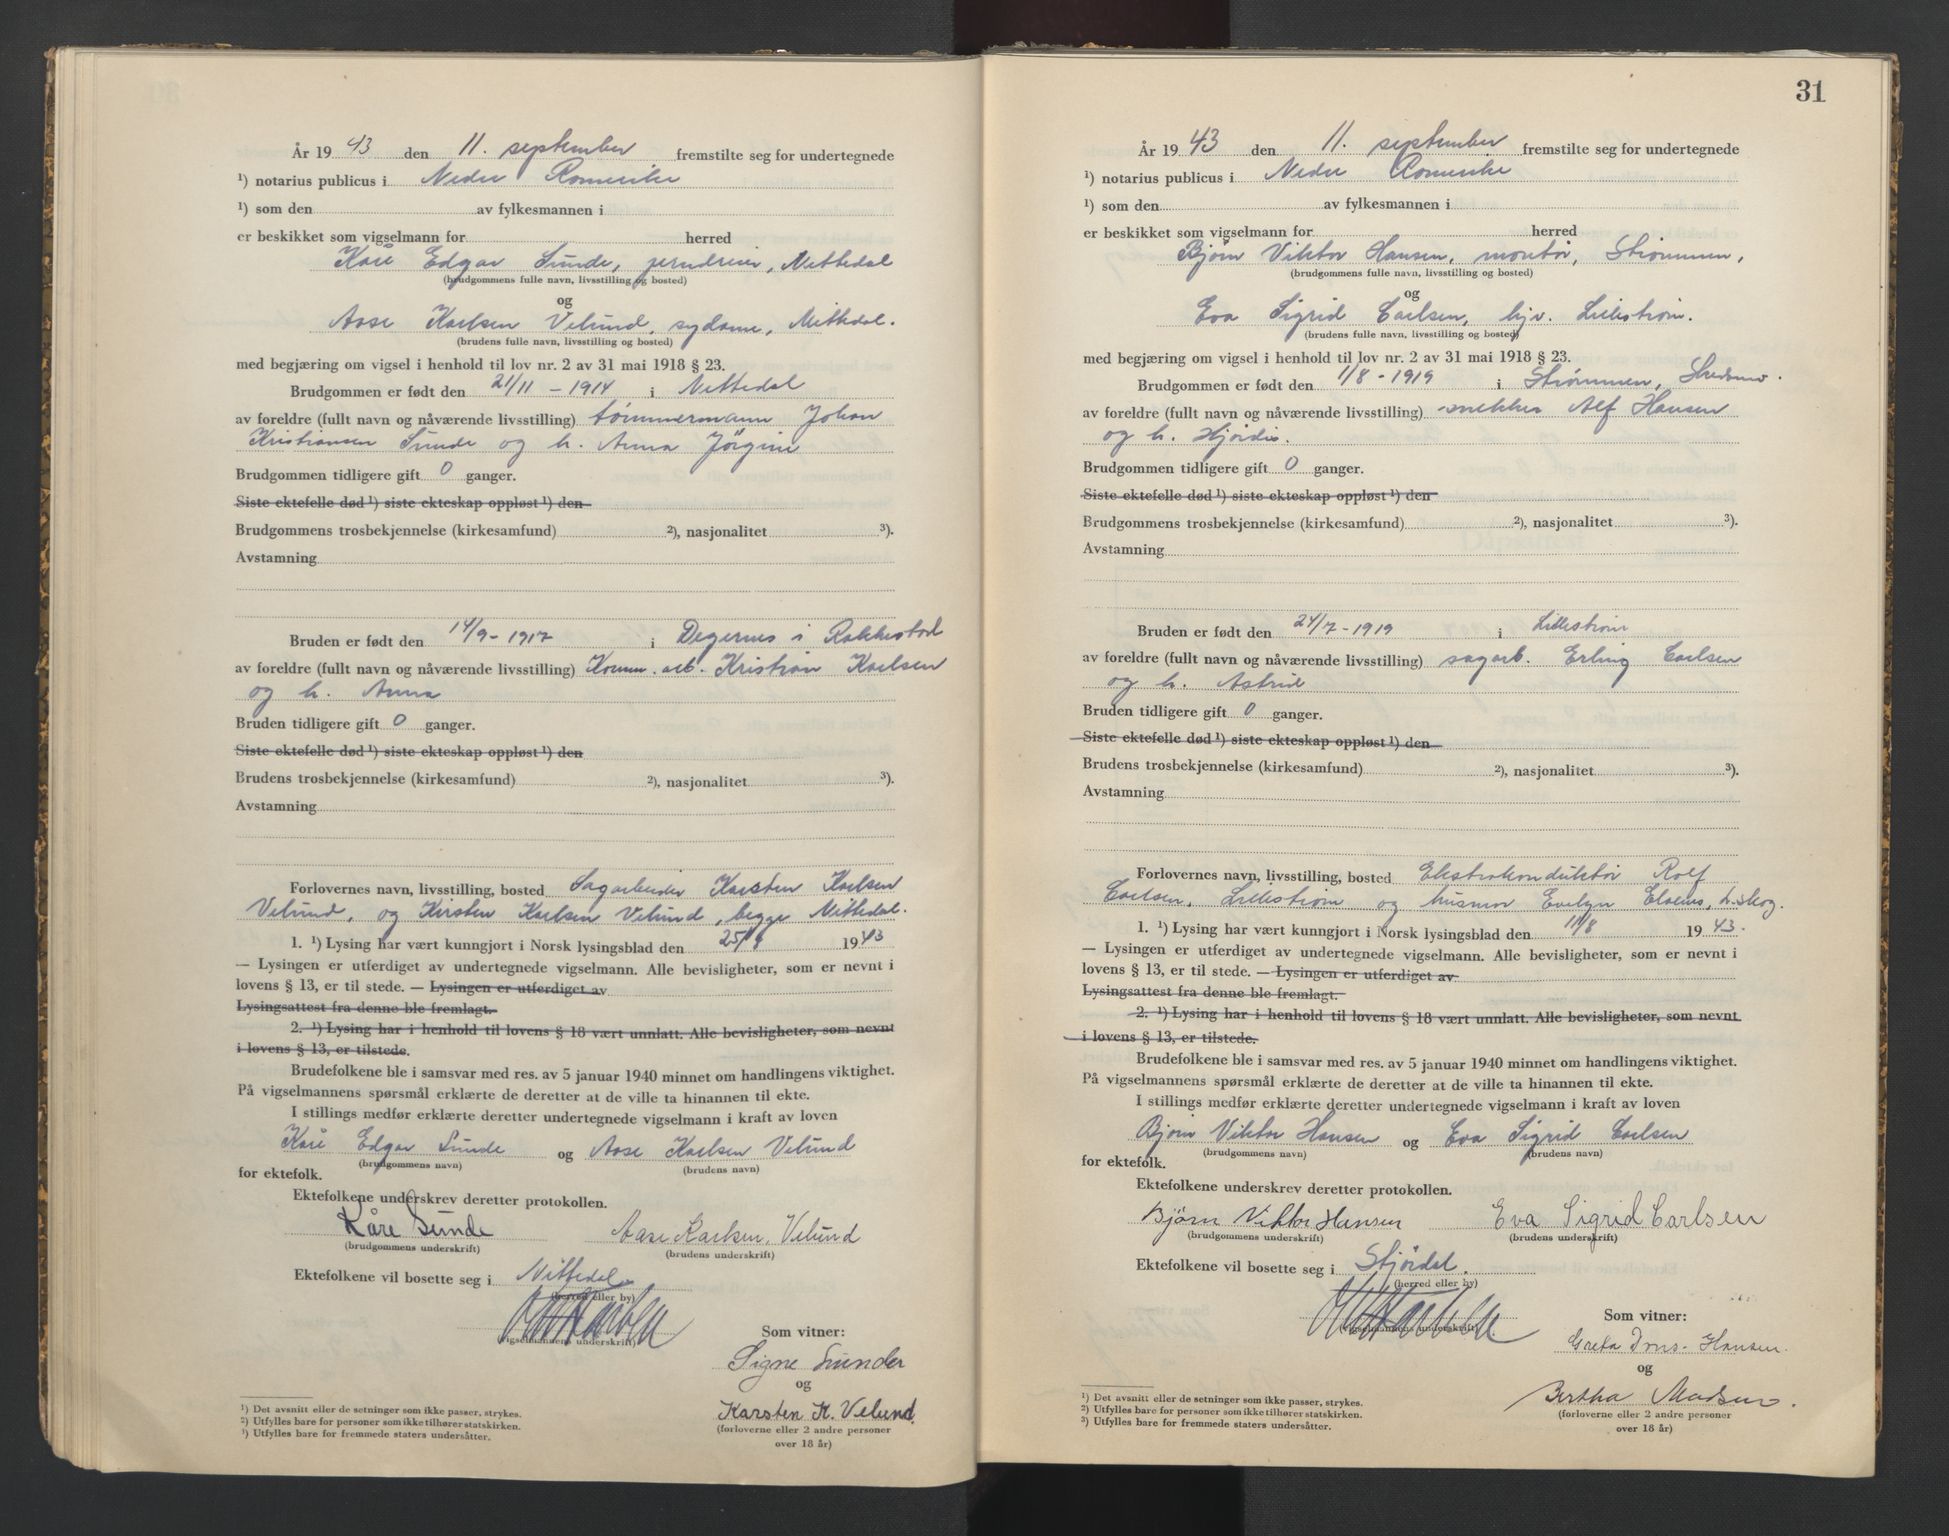 År 19 43 den 11. september fremstilte seg for undertegnede
¹) notarius publicus i Nedre Romerike
¹) som den av fylkesmannen i
er beskikket som vigselmann for herred
Kåre Edgar Sunde, jerndreier, Nittedal
(brudgommens fulle navn, livsstilling og bosted)
og
Aase Karlsen Velund, sydame, Nittedal.
(brudens fulle navn, livsstilling og bosted)
med begjæring om vigsel i henhold til lov nr. 2 av 31 mai 1918 § 23.
Brudgommen er født den 21/11 - 1914 i Nittedal
av foreldre (fullt navn og nåværende livsstilling) tømmermann Johan
Kristiansen Sunde og h. Anna Jörgine
Brudgommen tidligere gift 0 ganger.
Siste ektefelle død ¹) siste ekteskap oppløst ¹) den
Brudgommens trosbekjennelse (kirkesamfund) ²), nasjonalitet ³).
Avstamning
Bruden er født den 14/9 - 1917 i Degernes i Rakkestad
av foreldre (fullt navn og nåværende livsstilling) Komm. arb. Kristian Karlsen
og h. Anna
Bruden tidligere gift 0 ganger.
Siste ektefelle død ¹) siste ekteskap oppløst ¹) den
Brudens trosbekjennelse (kirkesamfund) ²), nasjonalitet ³).
Avstamning
Forlovernes navn, livsstilling, bosted Sagarbeider Karsten Karlsen
Velund, og Kirsten Karlsen Velund, begge Nittedal.
1. ¹) Lysing har vært kunngjort i Norsk lysingsblad den 19 43
— Lysingen er utferdiget av undertegnede vigselmann. Alle bevisligheter, som er nevnt i
lovens § 13, er til stede. — Lysingen er utferdiget av
Lysingsattest fra denne ble fremlagt.
2. ¹) Lysing har i henhold til lovens § 18 vært unnlatt. Alle bevisligheter, som nevnt
i lovens § 13, er tilstede.
Brudefolkene ble i samsvar med res. av 5 januar 1940 minnet om handlingens viktighet.
På vigselmannens spørsmål erklærte de deretter at de ville ta hinannen til ekte.
I stillings medfør erklærte deretter undertegnede vigselmann i kraft av loven
Kåre Edgar Sunde og Aase Karlsen Velund
(brudgommens navn) (brudens navn)
for ektefolk.
Ektefolkene underskrev deretter protokollen.
Kåre Sunde Aase Karlsen Velund
(brudgommens underskrift) (brudens underskrift)
Ektefolkene vil bosette seg i Nittedal
(herred eller by)
(vigselmannens underskrift)
Som vitner:
Signe Sunder
og
Karsten K. Velund
(forloverne eller 2 andre personer
over 18 år)
¹) Det avsnitt eller de setninger som ikke passer, strykes.
²) Utfylles bare for personer som ikke tilhører statskirken.
³) Utfylles bare for fremmede staters undersåtter.
31
År 19 43 den 11. september fremstilte seg for undertegnede
¹) notarius publicus i Nedre Romerike
¹) som den av fylkesmannen i
er beskikket som vigselmann for herred
Bjørn Viktor Hansen, montør, Strømmen,
(brudgommens fulle navn, livsstilling og bosted)
og
Eva Sigrid Carlsen, hjv. Lillestrøm.
(brudens fulle navn, livsstilling og bosted)
med begjæring om vigsel i henhold til lov nr. 2 av 31 mai 1918 § 23.
Brudgommen er født den 1/8 - 1919 i Strømmen, Skedsmo.
av foreldre (fullt navn og nåværende livsstilling) snekker Alf Hansen
og h. Hjördis.
Brudgommen tidligere gift 0 ganger.
Siste ektefelle død ¹) siste ekteskap oppløst ¹) den
Brudgommens trosbekjennelse (kirkesamfund) ²), nasjonalitet ³).
Avstamning
Bruden er født den 24/7 - 1919 i Lillestrøm
av foreldre (fullt navn og nåværende livsstilling) sagarb. Erling Carlsen
og h. Astrid
Bruden tidligere gift 0 ganger.
Siste ektefelle død ¹) siste ekteskap oppløst ¹) den
Brudens trosbekjennelse (kirkesamfund) ²), nasjonalitet ³).
Avstamning
Forlovernes navn, livsstilling, bosted Ekstrakonduktør Rolf
Carlsen, Lillestrøm og husmor Evelyn
1. ¹) Lysing har vært kunngjort i Norsk lysingsblad den 11/8 19 43.
— Lysingen er utferdiget av undertegnede vigselmann. Alle bevisligheter, som er nevnt i
lovens § 13, er til stede. — Lysingen er utferdiget av
Lysingsattest fra denne ble fremlagt.
2. ¹) Lysing har i henhold til lovens § 18 vært unnlatt. Alle bevisligheter, som nevnt
i lovens § 13, er tilstede.
Brudefolkene ble i samsvar med res. av 5 januar 1940 minnet om handlingens viktighet.
På vigselmannens spørsmål erklærte de deretter at de ville ta hinannen til ekte.
I stillings medfør erklærte deretter undertegnede vigselmann i kraft av loven
Bjørn Viktor Hansen og Eva Sigrid Carlsen
(brudgommens navn) (brudens navn)
for ektefolk.
Ektefolkene underskrev deretter protokollen.
Bjørn Viktor Hansen Eva Sigrid Carlsen
(brudgommens underskrift) (brudens underskrift)
Ektefolkene vil bosette seg i Stjördal.
(herred eller by)
(vigselmannens underskrift)
Som vitner:
Greta Hansen.
og
Bertha Madsen.
(forloverne eller 2 andre personer
over 18 år)
¹) Det avsnitt eller de setninger som ikke passer, strykes.
²) Utfylles bare for personer som ikke tilhører statskirken.
³) Utfylles bare for fremmede staters undersåtter.